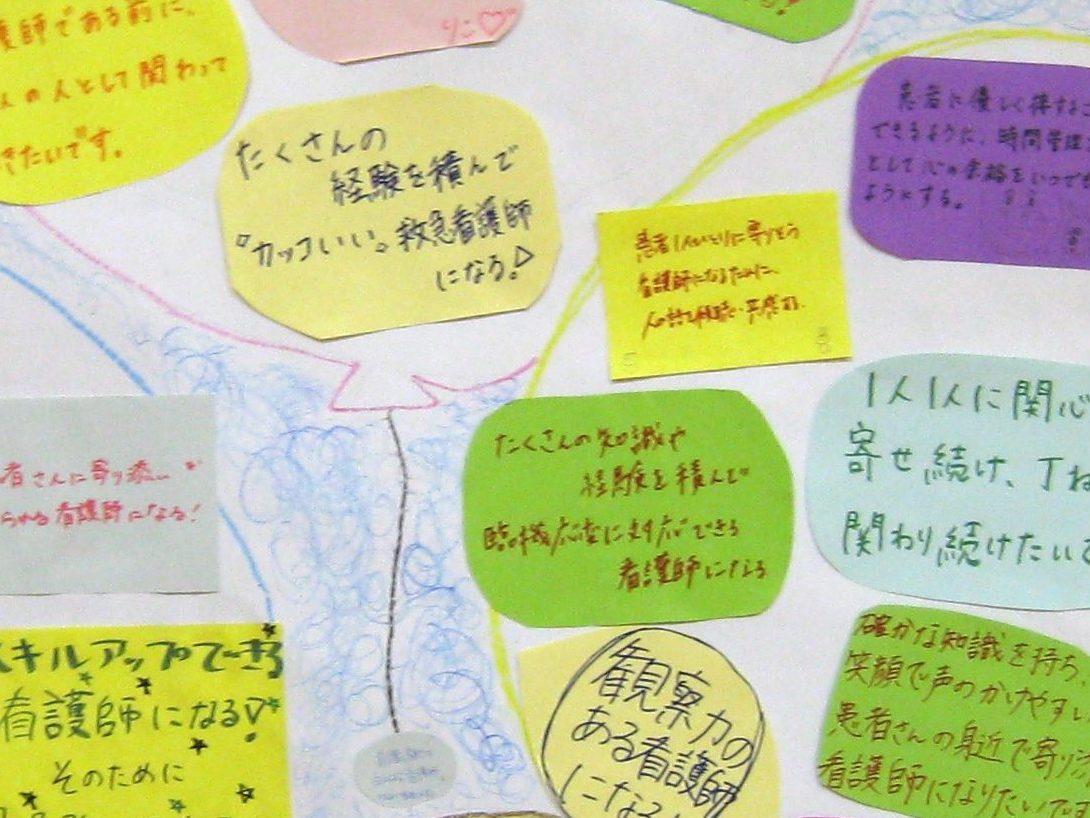 護師である前に、
人の人として関わって
きたいです。
りこ♡
たくさんの
経験を積んで
"カッコいい"救急看護師
になる!
患者に優しく接する
できるように、時間管理
として心の余裕をいつでも
ようにする。
患者1人ひとりに寄りそう
看護師になるために、
者さんに寄り添い
られる看護師になる!
たくさんの知識や
経験を積んで
臨機応変に対応できる
看護師になる
1人1人に関心
寄せ続け、丁ね
関わり続けたい
スキルアップできる
看護師になる
そのために
観察力の
ある看護師
になる
確かな知識を持ち、
笑顔で声のかけやすい
患者さんの身近で寄り添
看護師になりたいです